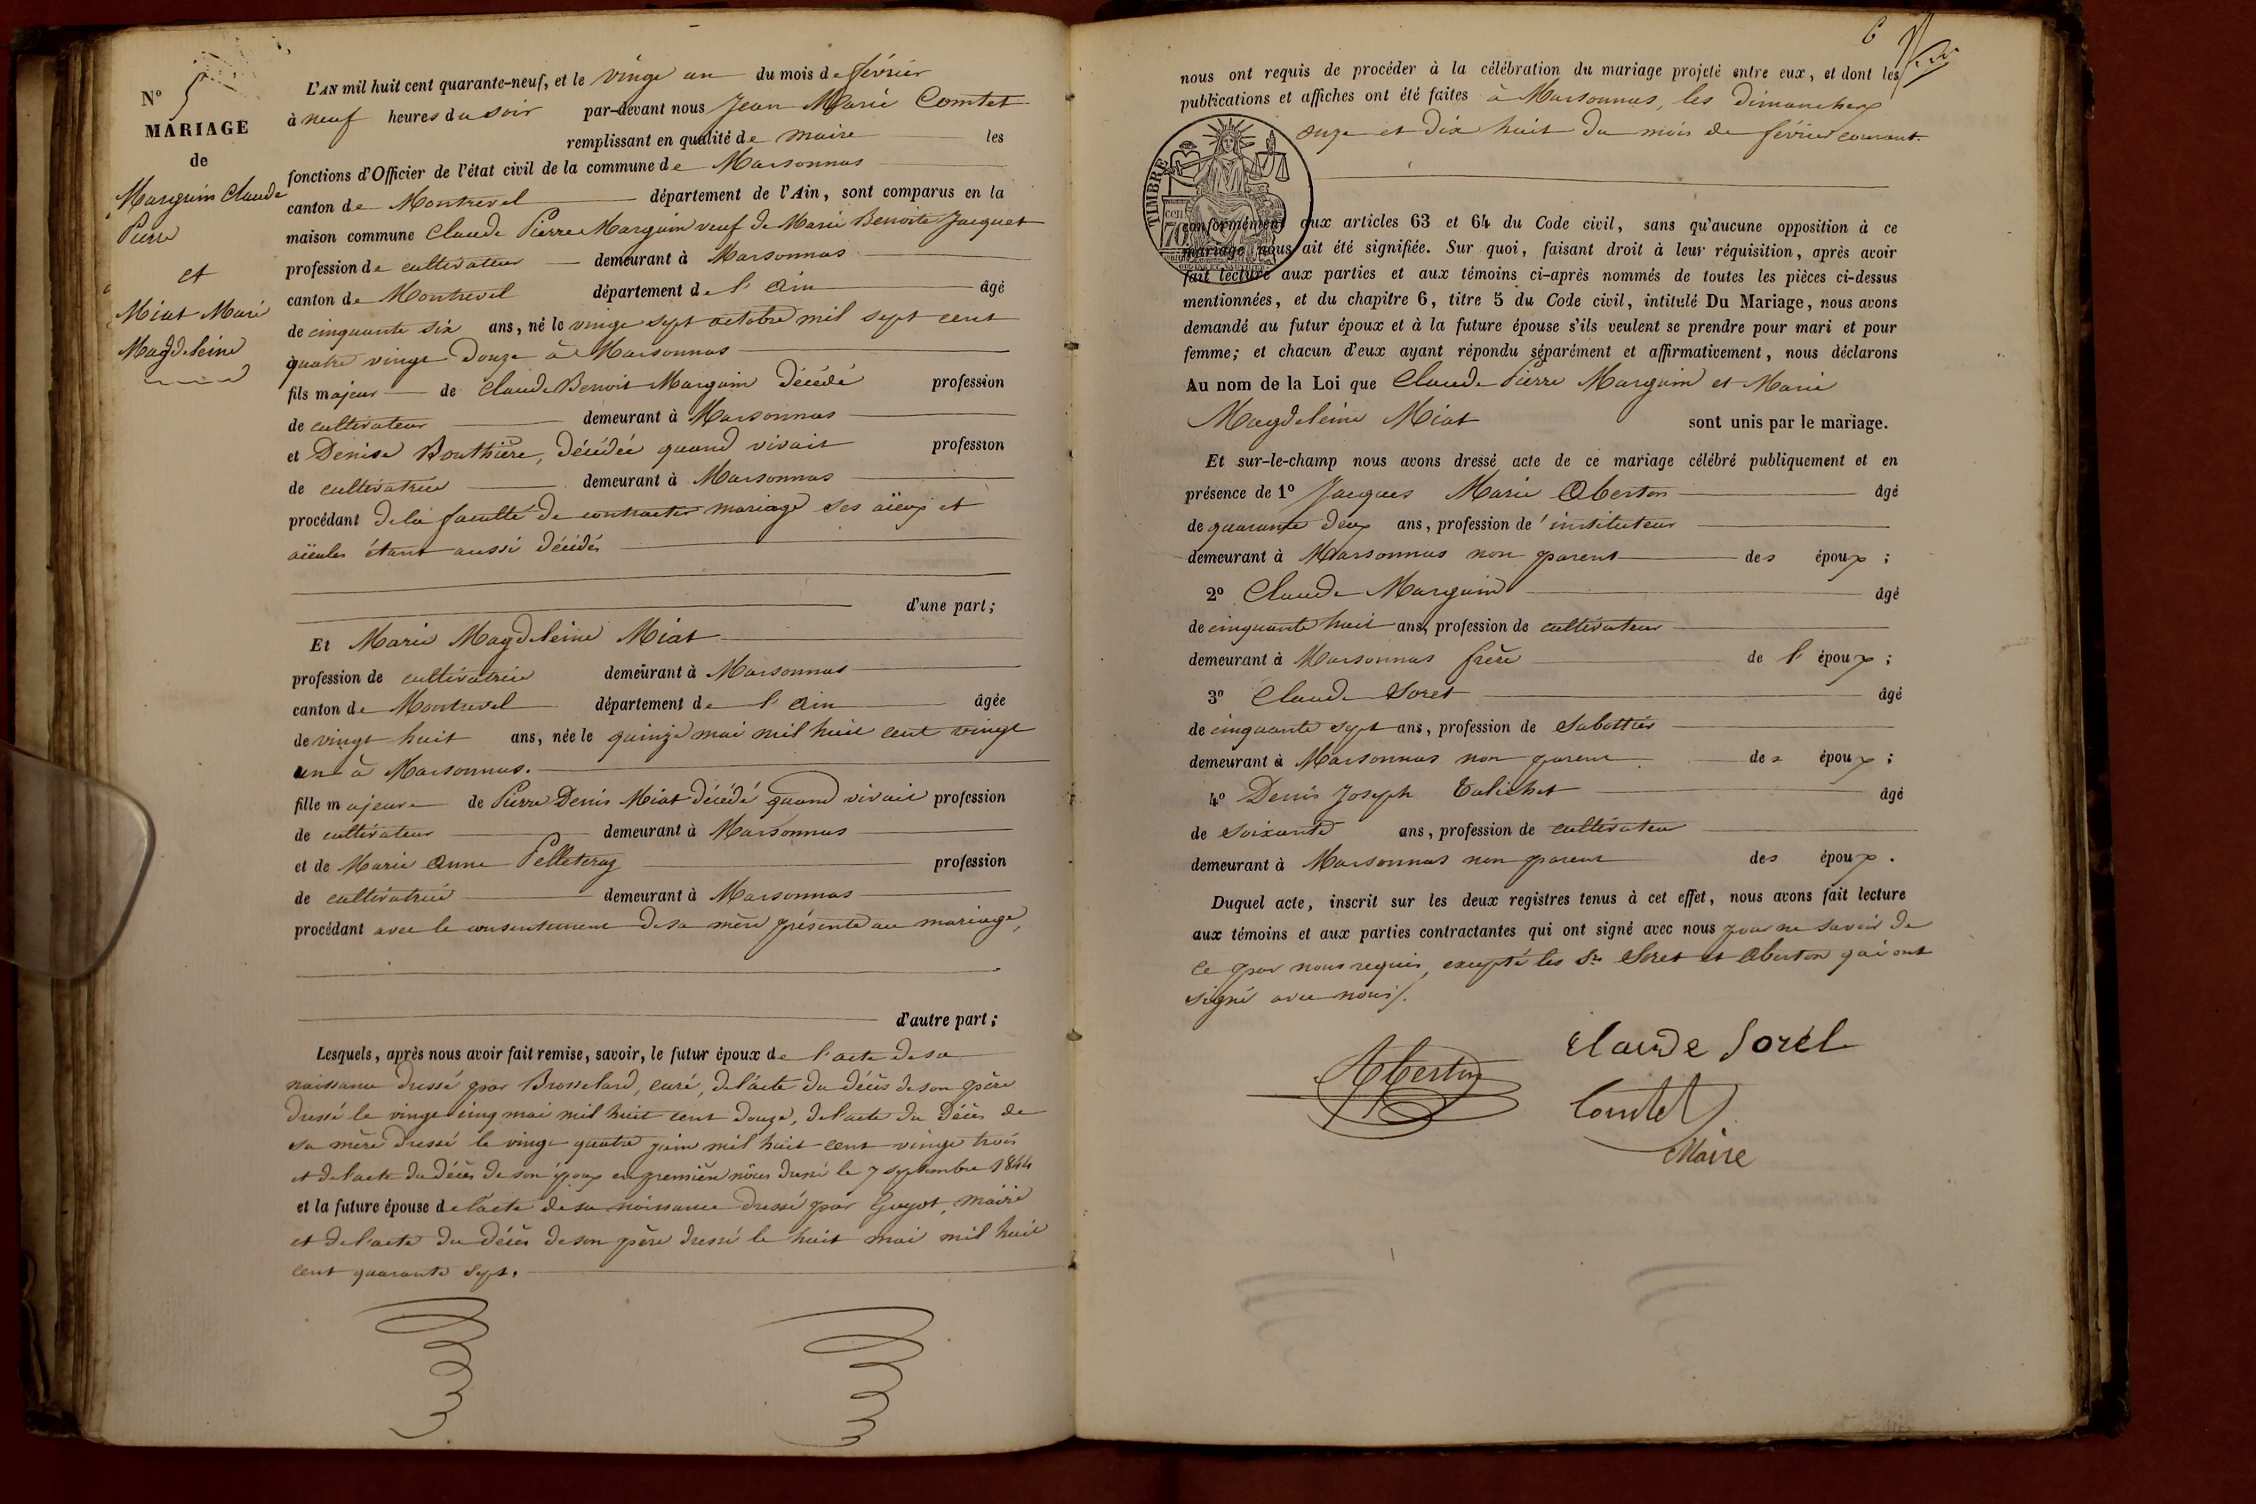 N° 5
MARIAGE
de
Marguin Claude
Pierre
et
Miat Marie
Magdeleine
L'AN mil huit cent quarante-neuf, et le vingt un du mois de février
à neuf heures du soir par-devant nous Jean Marie Comtet
remplissant en qualité de maire les
fonctions d'Officier de l'état civil de la commune de Marsonnas
canton de Montrevel département de l'Ain, sont comparus en la
maison commune Claude Pierre Marguin veuf de Marie Benoite Jacquet
profession de cultivateur demeurant à Marsonnas
canton de Montrevel département de l'Ain âgé
de cinquante six ans, né le vingt sept octobre mil sept cent
quatre vingt douze à Marsonnas
fils majeur de Claude Benoit Marguin décédé profession
de cultivateur demeurant à Marsonnas
et Denise Bouthière, décédée quand vivait profession
de cultivatrice demeurant à Marsonnas
procédant de la faculté de contracter mariage ses aïeux et
aïeules étant aussi décédés
d'une part;
Et Marie Magdeleine Miat
profession de cultivatrice demeurant à Marsonnas
canton de Montrevel département de l'Ain âgée
de vingt huit ans, née le quinze mai mil huit cent vingt
un à Marsonnas.
fille majeure de Pierre Denis Miat décédé quand vivait profession
de cultivateur demeurant à Marsonnas
et de Marie Anne Pelleteray profession
de cultivatrice demeurant à Marsonnas
procédant avec le consentement de sa mère présente au mariage,
d'autre part;
Lesquels, après nous avoir fait remise, savoir, le futur époux de l'acte de sa
naissance dressé par Brosselard, curé, de l'acte du décès de son père
dressé le vingt cinq mai mil huit cent douze, de l'acte du Décès de
sa mère dressé le vingt quatre juin mil huit cent vingt trois
et de l'acte du décès de son époux en premières nôces dressé le 7 septembre 1844
et la future épouse de l'acte de sa naissance dressé par Guyot, maire
et de l'acte du décès de son père dressé le huit mai mil huit
cent quarante sept.
6
nous ont requis de procéder à la célébration du mariage projeté entre eux, et dont les
publications et affiches ont été faites à Marsonnas, les dimanches
onze et dix huit du mois de février courant.
TIMBRE
conformément aux articles 63 et 64 du Code civil, sans qu'aucune opposition à ce
mariage nous ait été signifiée. Sur quoi, faisant droit à leur réquisition, après avoir
fait lecture aux parties et aux témoins ci-après nommés de toutes les pièces ci-dessus
mentionnées, et du chapitre 6, titre 5 du Code civil, intitulé Du Mariage, nous avons
demandé au futur époux et à la future épouse s'ils veulent se prendre pour mari et pour
femme; et chacun d'eux ayant répondu séparément et affirmativement, nous déclarons
Au nom de la Loi que Claude Pierre Marguin et Marie
Magdeleine Miat sont unis par le mariage.
Et sur-le-champ nous avons dressé acte de ce mariage célébré publiquement et en
présence de 1° Jacques Marie Oberton âgé
de quarante deux ans, profession de instituteur
demeurant à Marsonnas non parent des époux;
2° Claude Marguin âgé
de cinquante huit ans, profession de cultivateur
demeurant à Marsonnas frère de l'époux;
3° Claude Soret âgé
de cinquante sept ans, profession de Sabottier
demeurant à Marsonnas non parent des époux;
4° Denis Joseph Talichet âgé
de soixante ans, profession de cultivateur
demeurant à Marsonnas non parent des époux.
Duquel acte, inscrit sur les deux registres tenus à cet effet, nous avons fait lecture
aux témoins et aux parties contractantes qui ont signé avec nous pour ne savoir de
ce par nous requis, excepté les Srs Soret et Oberton qui ont
signé avec nous.
Claude Sorel
Comtet
Maire